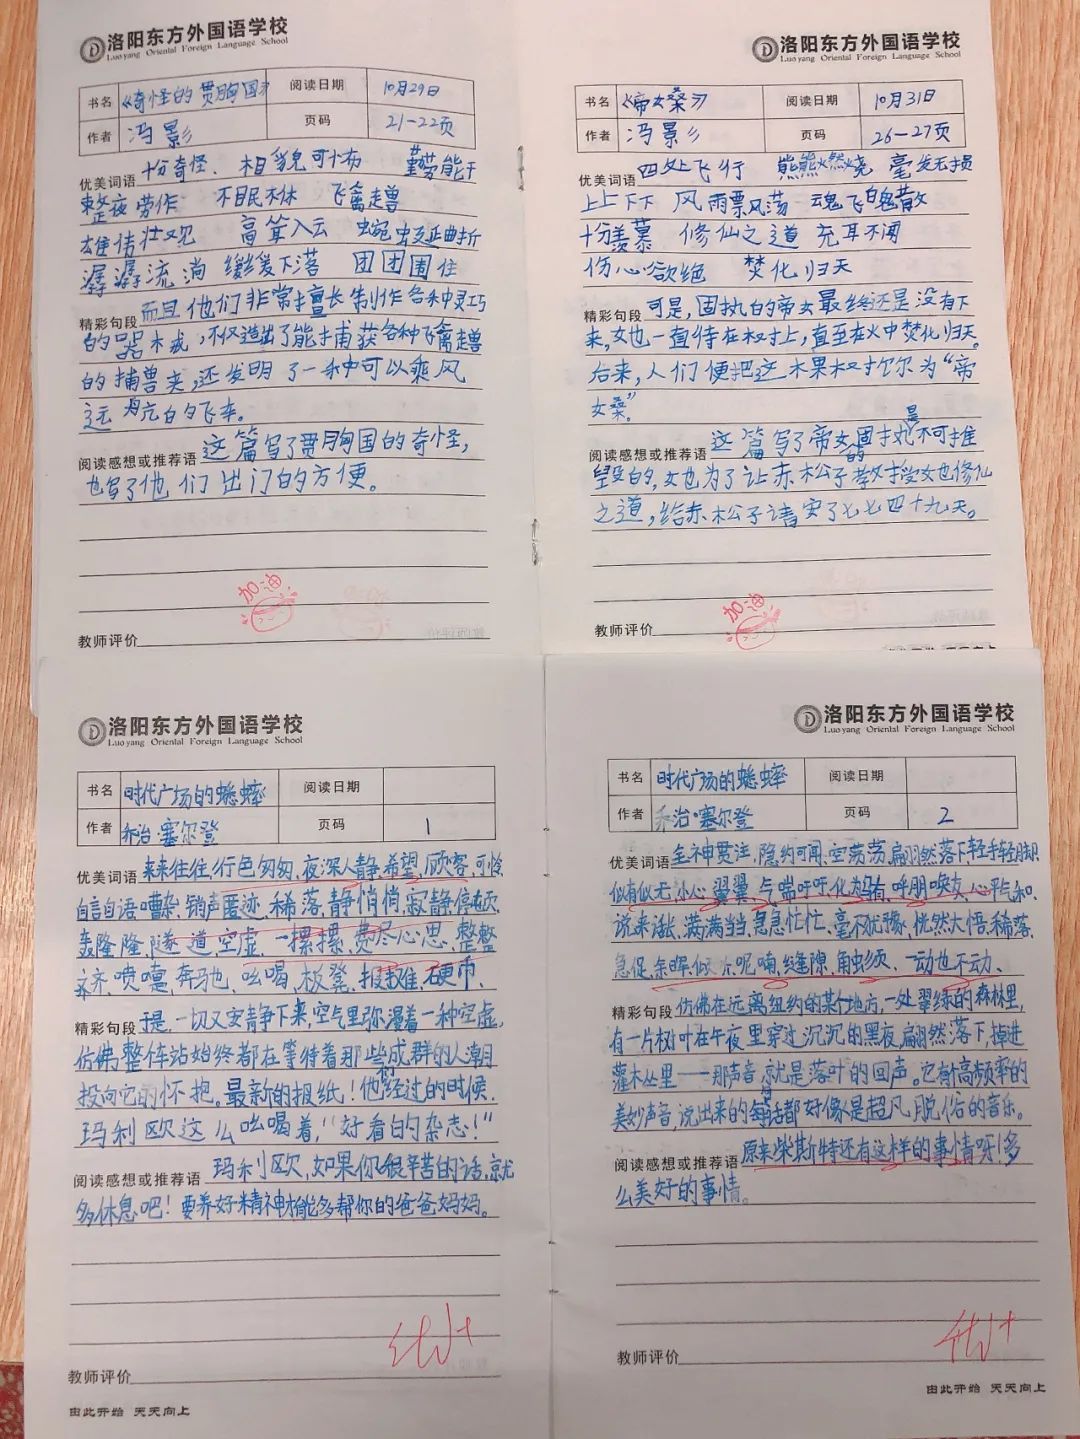 洛阳东方外国语学校
Luoyang Oriental Foreign Language School
书名 《奇怪的贯胸国》 阅读日期 10月29日
作者 冯影 页码 21-22页
优美词语 十分奇怪、相貌可怖 勤劳能干
整夜劳作 不眠不休 飞禽走兽
雄伟壮观 高耸入云 蜿蜒曲折
潺潺流淌 缓缓下落 团团围住
精彩句段 而且他们非常擅长制作各种灵巧
的器械,不仅造出了能捕获各种飞禽走兽
的捕兽夹,还发明了一种可以乘风
远航的飞车。
阅读感想或推荐语 这篇写了贯胸国的奇怪,
也写了他们出门的方便。
加油
教师评价
洛阳东方外国语学校
Luoyang Oriental Foreign Language School
书名 《帝女桑》 阅读日期 10月31日
作者 冯影 页码 26-27页
优美词语 四处飞行 熊熊燃烧 毫发无损
上上下下 风雨飘荡 魂飞魄散
十分羡慕 修仙之道 充耳不闻
伤心欲绝 焚化归天
精彩句段 可是,固执的帝女最终还是没有下
来,她一直待在树上,直至在火中焚化归天。
后来,人们便把这棵树称为“帝
女桑”。
阅读感想或推荐语 这篇写了帝女的固执是不可摧
毁的,她为了让赤松子教授她修仙
之道,给赤松子请安了七七四十九天。
加油
教师评价
洛阳东方外国语学校
Luoyang Oriental Foreign Language School
书名 时代广场的蟋蟀 阅读日期
作者 乔治·塞尔登 页码 1
优美词语 来来往往、行色匆匆、夜深人静、希望、顾客、可怜
自言自语、嘈杂、销声匿迹、稀落、静悄悄、寂静、停顿
轰隆隆、隧道、空虚、一摞摞、费尽心思、整整
齐齐、喷嚏、奔驰、吆喝、板凳、报摊、硬币、
精彩句段 于是,一切又安静下来,空气里弥漫着一种空虚,
仿佛整个车站始终都在等待着那些成群的人潮
投向它的怀抱。最新的报纸!他经过的时候,
玛利欧这么吆喝着,“好看的杂志!”
阅读感想或推荐语 玛利欧,如果你很辛苦的话,就
多休息吧!要养好精神才能多帮你的爸爸妈妈。
优+
教师评价
由此开始 天天向上
洛阳东方外国语学校
Luoyang Oriental Foreign Language School
书名 时代广场的蟋蟀 阅读日期
作者 乔治·塞尔登 页码 2
优美词语 全神贯注、隐约可闻、空荡荡、翩然落下、轻手轻脚
似有似无、小心翼翼、气喘吁吁、化为乌有、呼朋唤友、心平气和、
说来逊、满满当当、急急忙忙、毫不犹豫、恍然大悟、稀落、
急促、余晖、呢喃、缝隙、触须、一动也不动、
精彩句段 仿佛在远离纽约的某个地方,一处翠绿的森林里,
有一片树叶在午夜里穿过沉沉的黑夜,翩然落下,掉进
灌木丛里——那声音就是落叶的回声。它有个高频率的
美妙声音,说出来的每句话都好像是超凡脱俗的音乐。
阅读感想或推荐语 原来柴斯特还有这样的事情呀!多
么美好的事情。
优+
教师评价
由此开始 天天向上